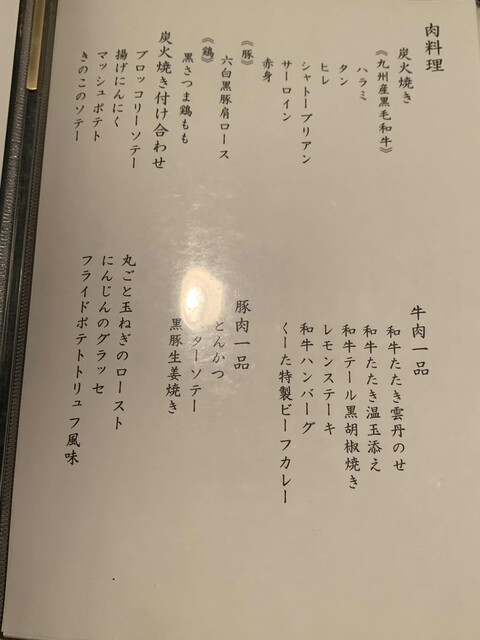 肉料理
炭火焼き
《九州産黒毛和牛》
ハラミ
タン
ヒレ
シャトーブリアン
サーロイン
赤身
《豚》
六白黒豚肩ロース
《鶏》
黒さつま鶏もも
炭火焼き付け合わせ
ブロッコリーソテー
揚げにんにく
マッシュポテト
きのこのソテー
牛肉一品
和牛たたき雲丹のせ
和牛たたき温玉添え
和牛テール黒胡椒焼き
レモンステーキ
和牛ハンバーグ
くーた特製ビーフカレー
豚肉一品
とんかつ
ターソテー
黒豚生姜焼き
丸ごと玉ねぎのロースト
にんじんのグラッセ
フライドポテトトリュフ風味